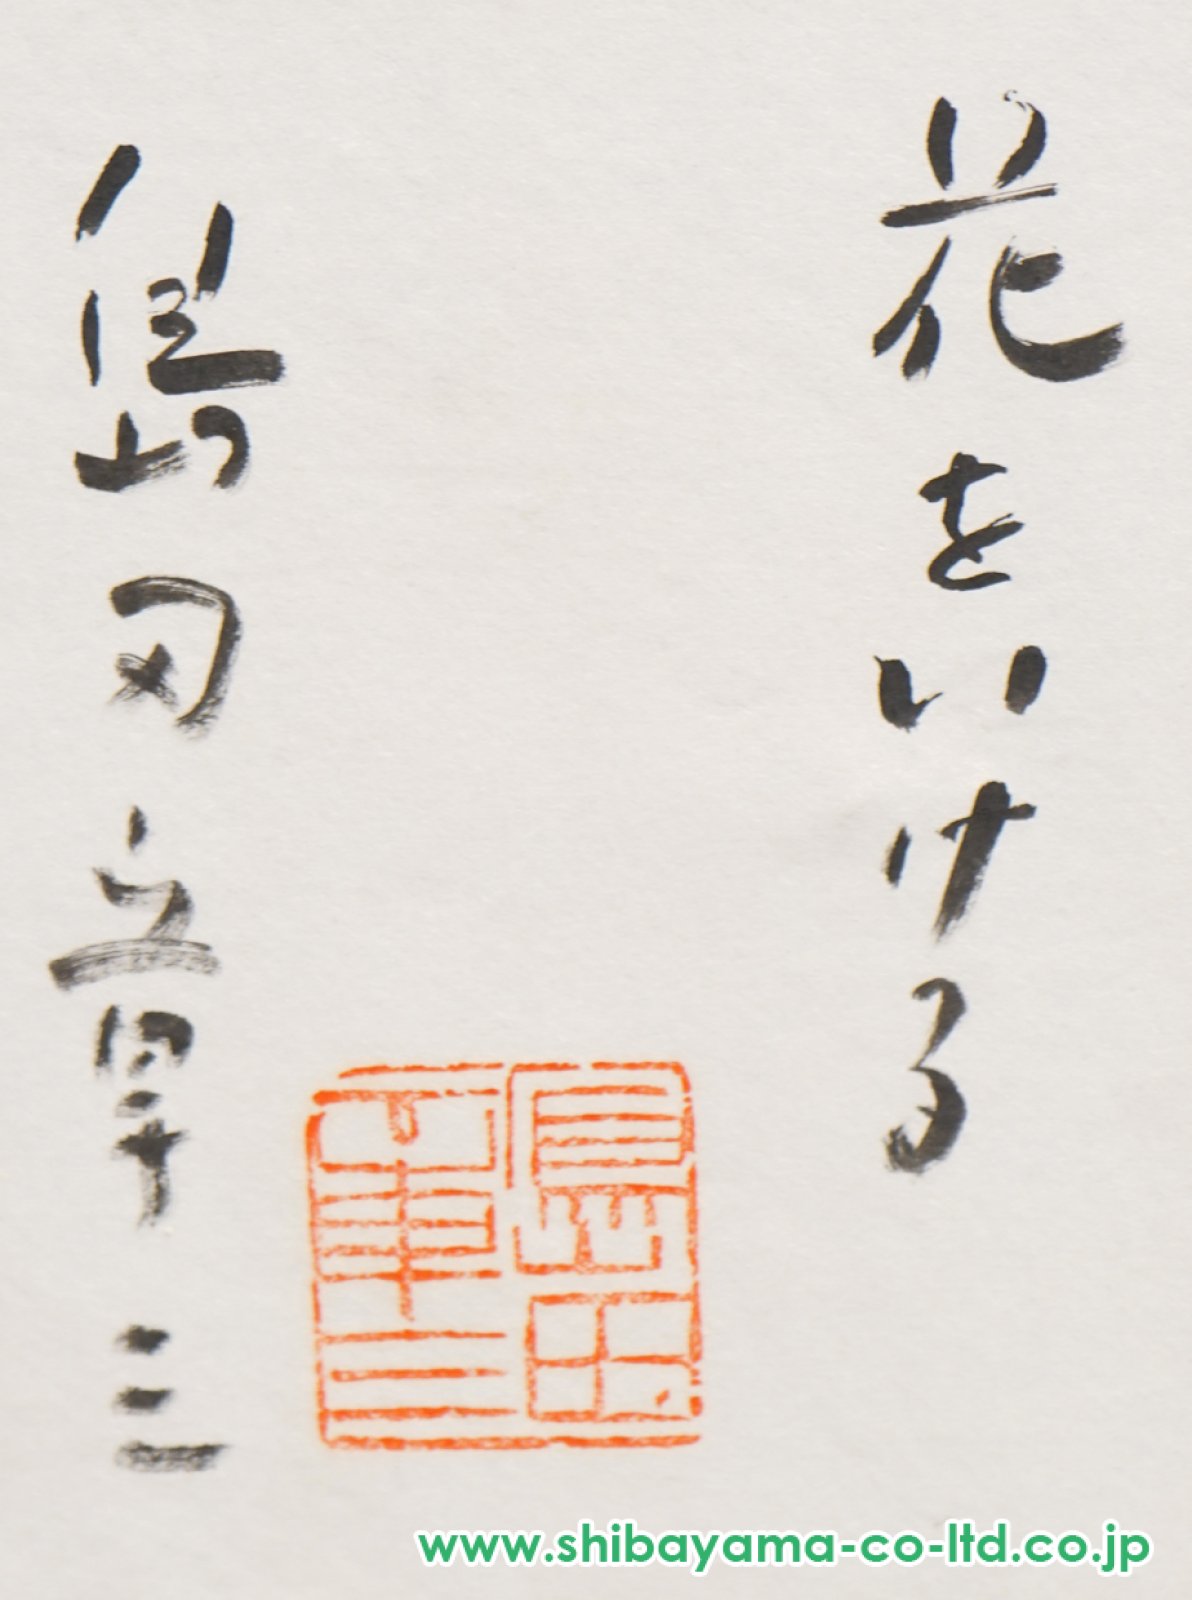 花をいける
島田章三
島田章三
www.shibayama-co-ltd.co.jp